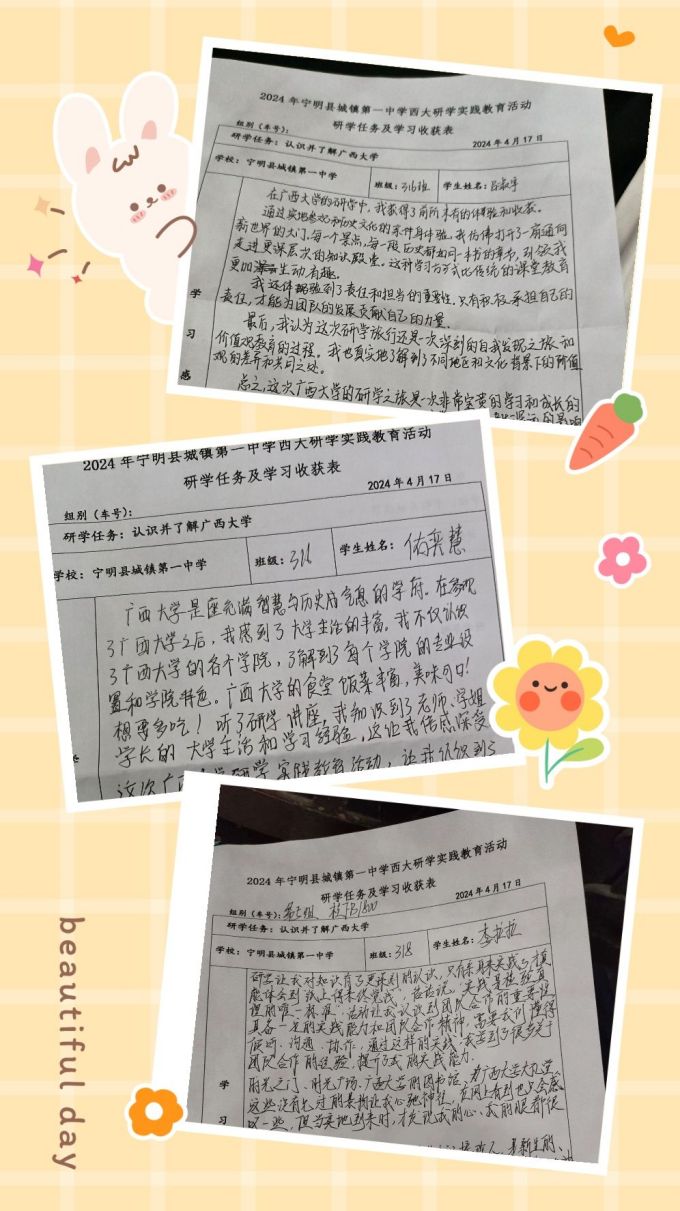 2024年宁明县城镇第一中学西大研学实践教育活动
研学任务及学习收获表
组别（车号）：
2024年4月17日
研学任务：认识并了解广西大学
学校：宁明县城镇第一中学
班级：316班
学生姓名：
在广西大学的研学中，我获得了前所未有的体验和收获。
通过实地参观和历史文化的亲身体验，我仿佛打开了一扇通向
新世界的大门，每一个景点，每一段历史都如同一本书的章节，引领我
走进更深层次的知识殿堂。这种学习方式比传统的课堂教育
更加生动有趣。
我还体验到了责任和担当的重要性，只有积极承担自己的
责任，才能为团队的发展贡献自己的力量。
最后，我认为这次研学旅行还是一次深刻的自我发现之旅和
价值观教育的过程。我也真实地了解到了不同地区和文化背景下的价值
观的差异和共同之处。
总之，这次广西大学的研学之旅是一次非常宝贵的学习和成长的
学
习
感
2024年宁明县城镇第一中学西大研学实践教育活动
研学任务及学习收获表
2024年4月17日
组别（车号）：
研学任务：认识并了解广西大学
学校：宁明县城镇第一中学
班级：316
学生姓名：佑奕慧
广西大学是座充满智慧与历史的气息的学府。在参观
了广西大学之后，我感到了大学生活的丰富。我不仅认识
了广西大学的各个学院，了解到了每个学院的专业设
置和学院特色。广西大学的食堂饭菜丰富，美味可口！
想要多吃！听了研学讲座，我知识到了老师、学姐
学长的大学生活和学习经验，这让我倍感深受
这次广西大学研学实践教育活动，让我认识到了
2024年宁明县城镇第一中学西大研学实践教育活动
研学任务及学习收获表
2024年4月17日
组别（车号）：第七组
研学任务：认识并了解广西大学
学校：宁明县城镇第一中学
班级：318
学生姓名：李拉拉
研学让我对知识有了更深刻的认识，只有亲身实践了才真
能体会到"纸上得来终觉浅"。俗话说，实践是检验真
理的唯一标准。活动让我认识到团队合作的重要性
具备一定的实践能力和团队合作精神，需要我们懂得
倾听、沟通、协作，通过这样的实践，我学到了很多关于
团队合作的经验，提升了我的实践能力。
时光之门、时光广场、广西大学的图书馆
这些没有见过的景物让我心驰神往，在网上看到也只会感
叹一些，但当实地到来时，才发觉我的心、我的眼都很
学
习
beautiful day